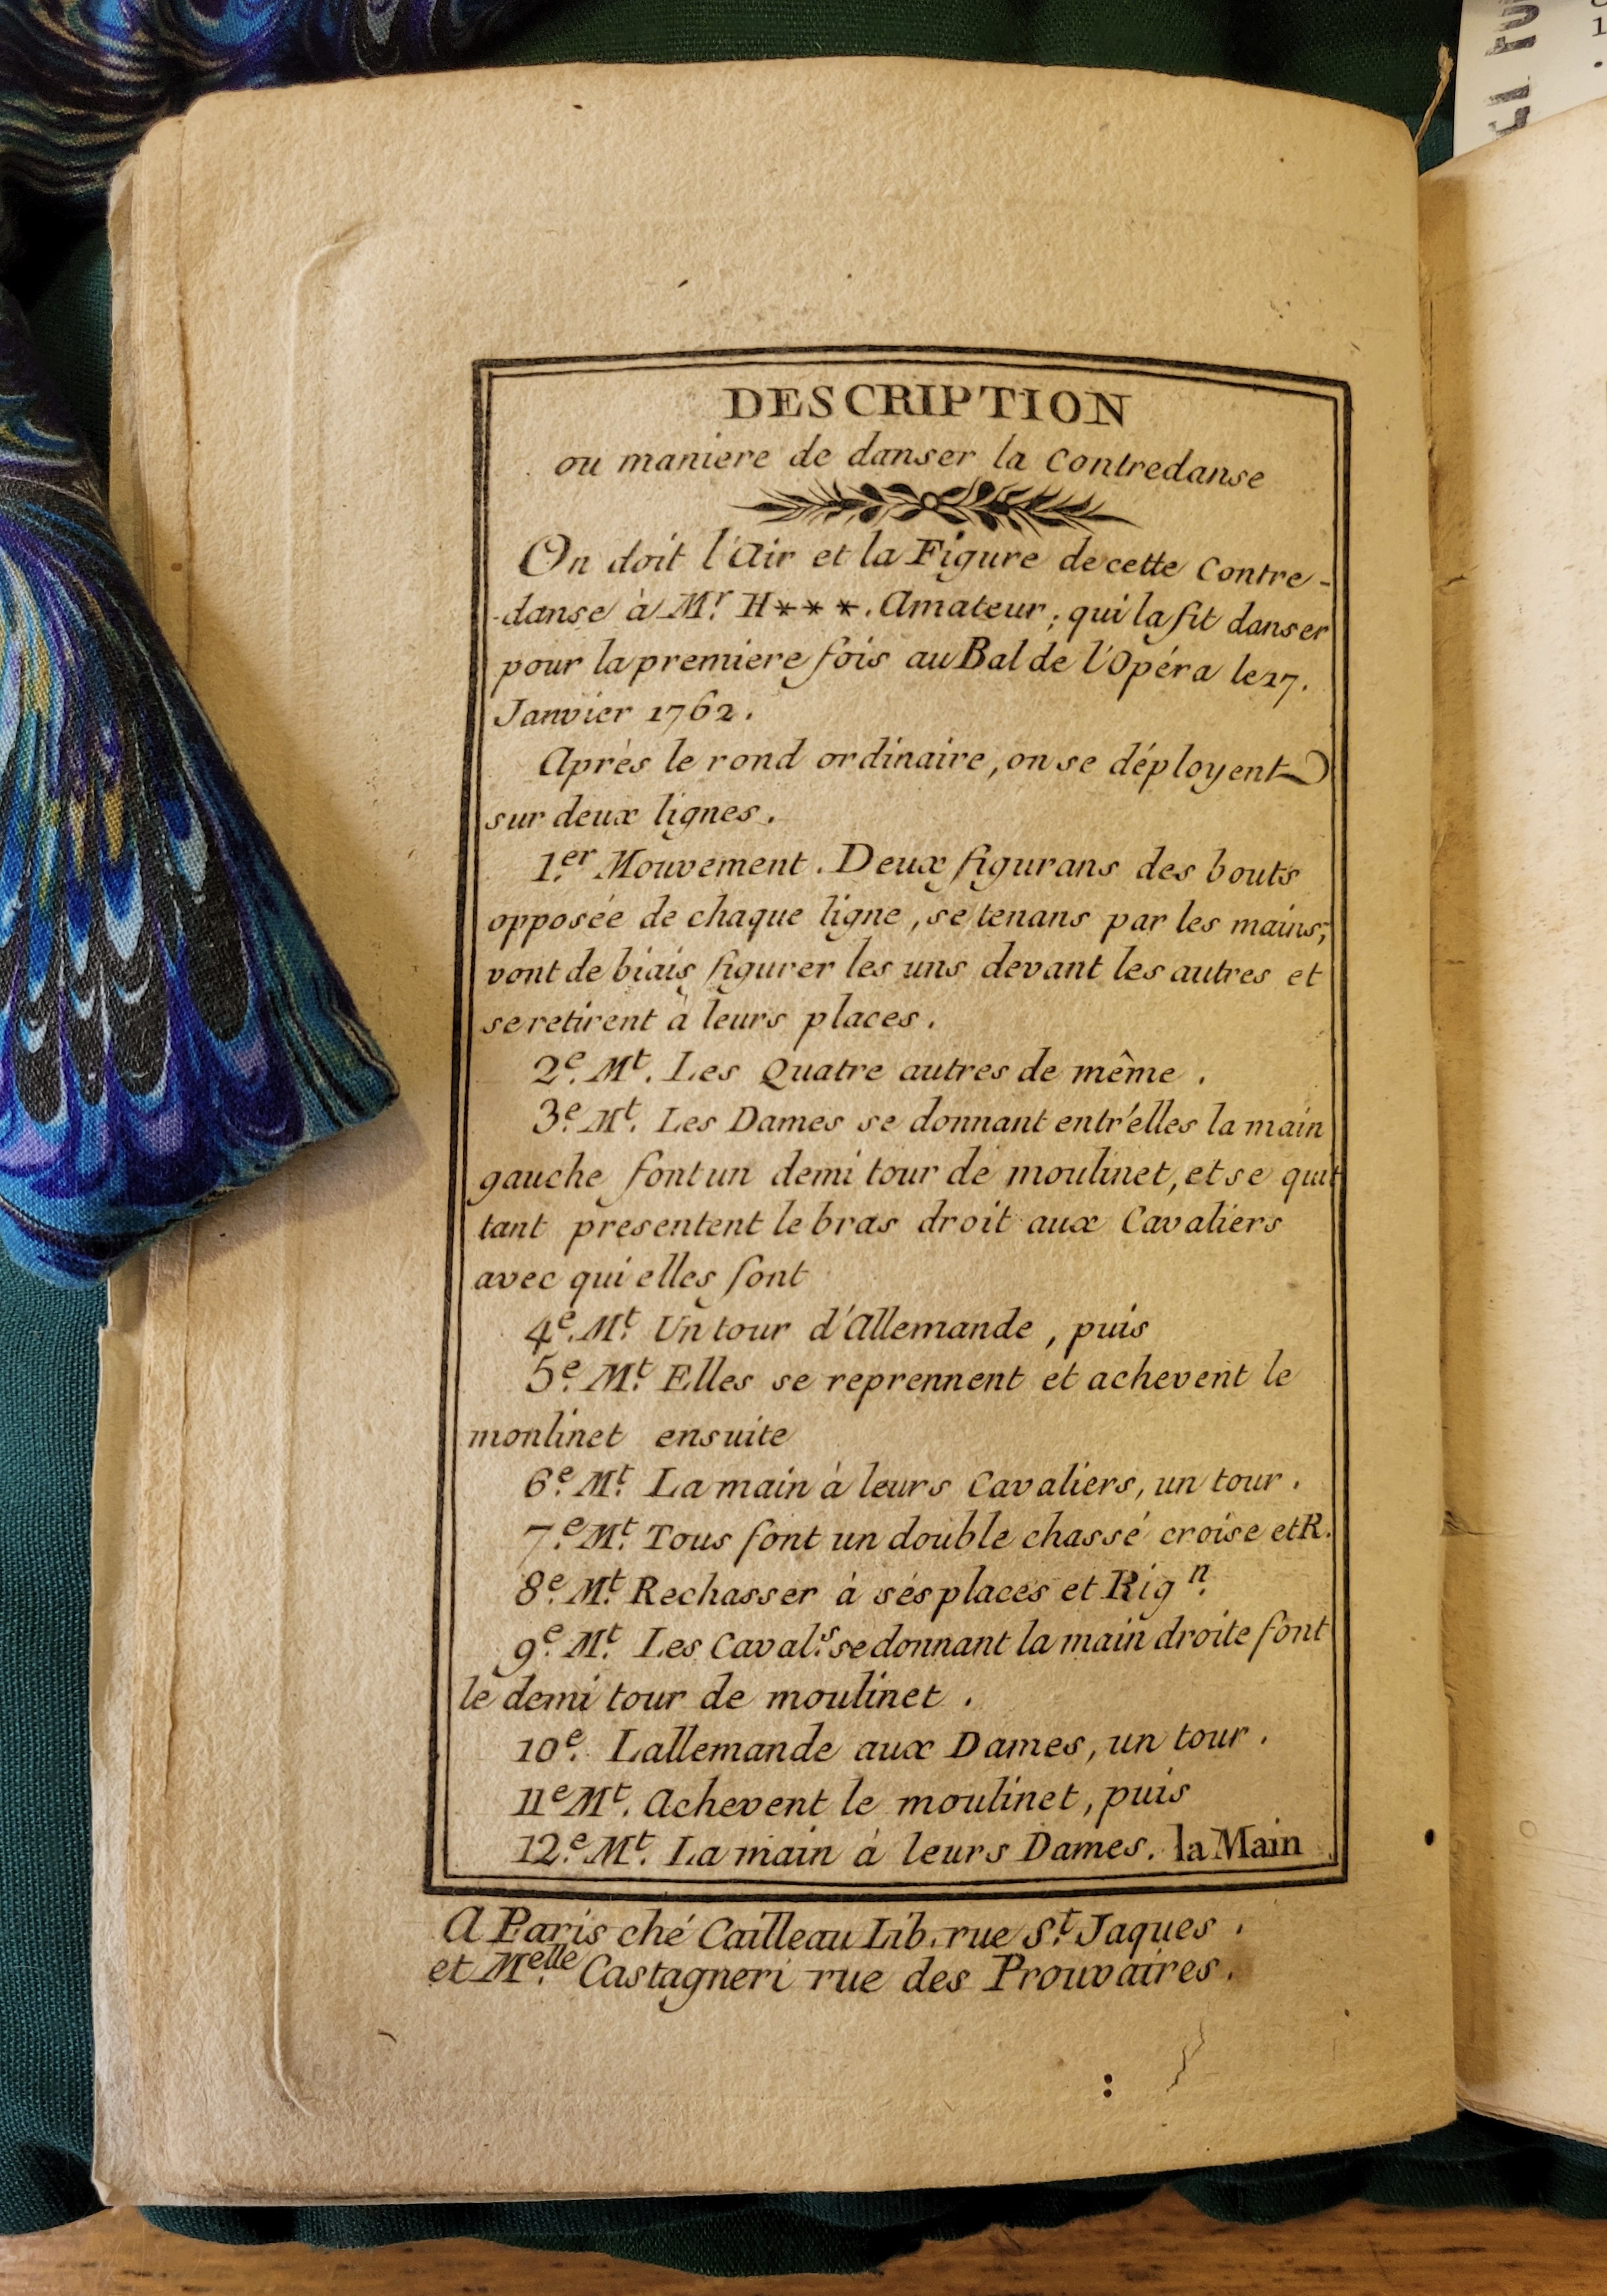 DESCRIPTION
ou maniere de danser la Contredanse
On doit l'Air et la Figure de cette Contre-
-danse à Mr. H***. Amateur; qui la fit danser
pour la premiere fois au Bal de l'Opéra le 27.
Janvier 1762.
Après le rond ordinaire, on se déployent
sur deux lignes.
1.er Mouvement. Deux figurans des bouts
opposée de chaque ligne, se tenans par les mains;
vont de biais figurer les uns devant les autres et
se retirent à leurs places.
2.e Mt. Les Quatre autres de même.
3.e Mt. Les Dames se donnant entr'elles la main
gauche font un demi tour de moulinet, et se quit
tant presentent le bras droit aux Cavaliers
avec qui elles font
4.e Mt. Un tour d'Allemande, puis
5.e Mt. Elles se reprennent et achevent le
monlinet ensuite
6.e Mt. La main à leurs Cavaliers, un tour.
7.e Mt. Tous font un double chassé croisé et R.
8.e Mt. Rechasser à sés places et Rign.
9.e Mt. Les Caval.s se donnant la main droite font
le demi tour de moulinet.
10.e Lallemande aux Dames, un tour.
11e Mt. Achevent le moulinet, puis
12.e Mt. La main à leurs Dames. la Main
A Paris ché Cailleau Lib. rue St. Jaques.
et Melle. Castagneri rue des Prouvaires.